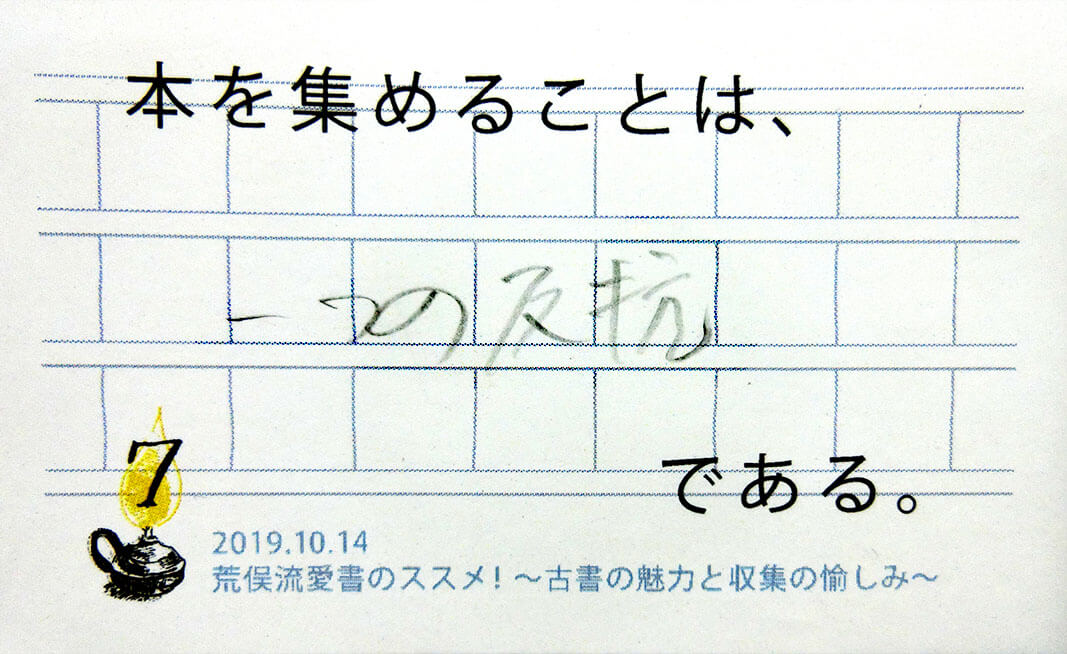 本を集めることは、
一つの反抗
である。
7
2019.10.14
荒俣流愛書のススメ！～古書の魅力と収集の愉しみ～